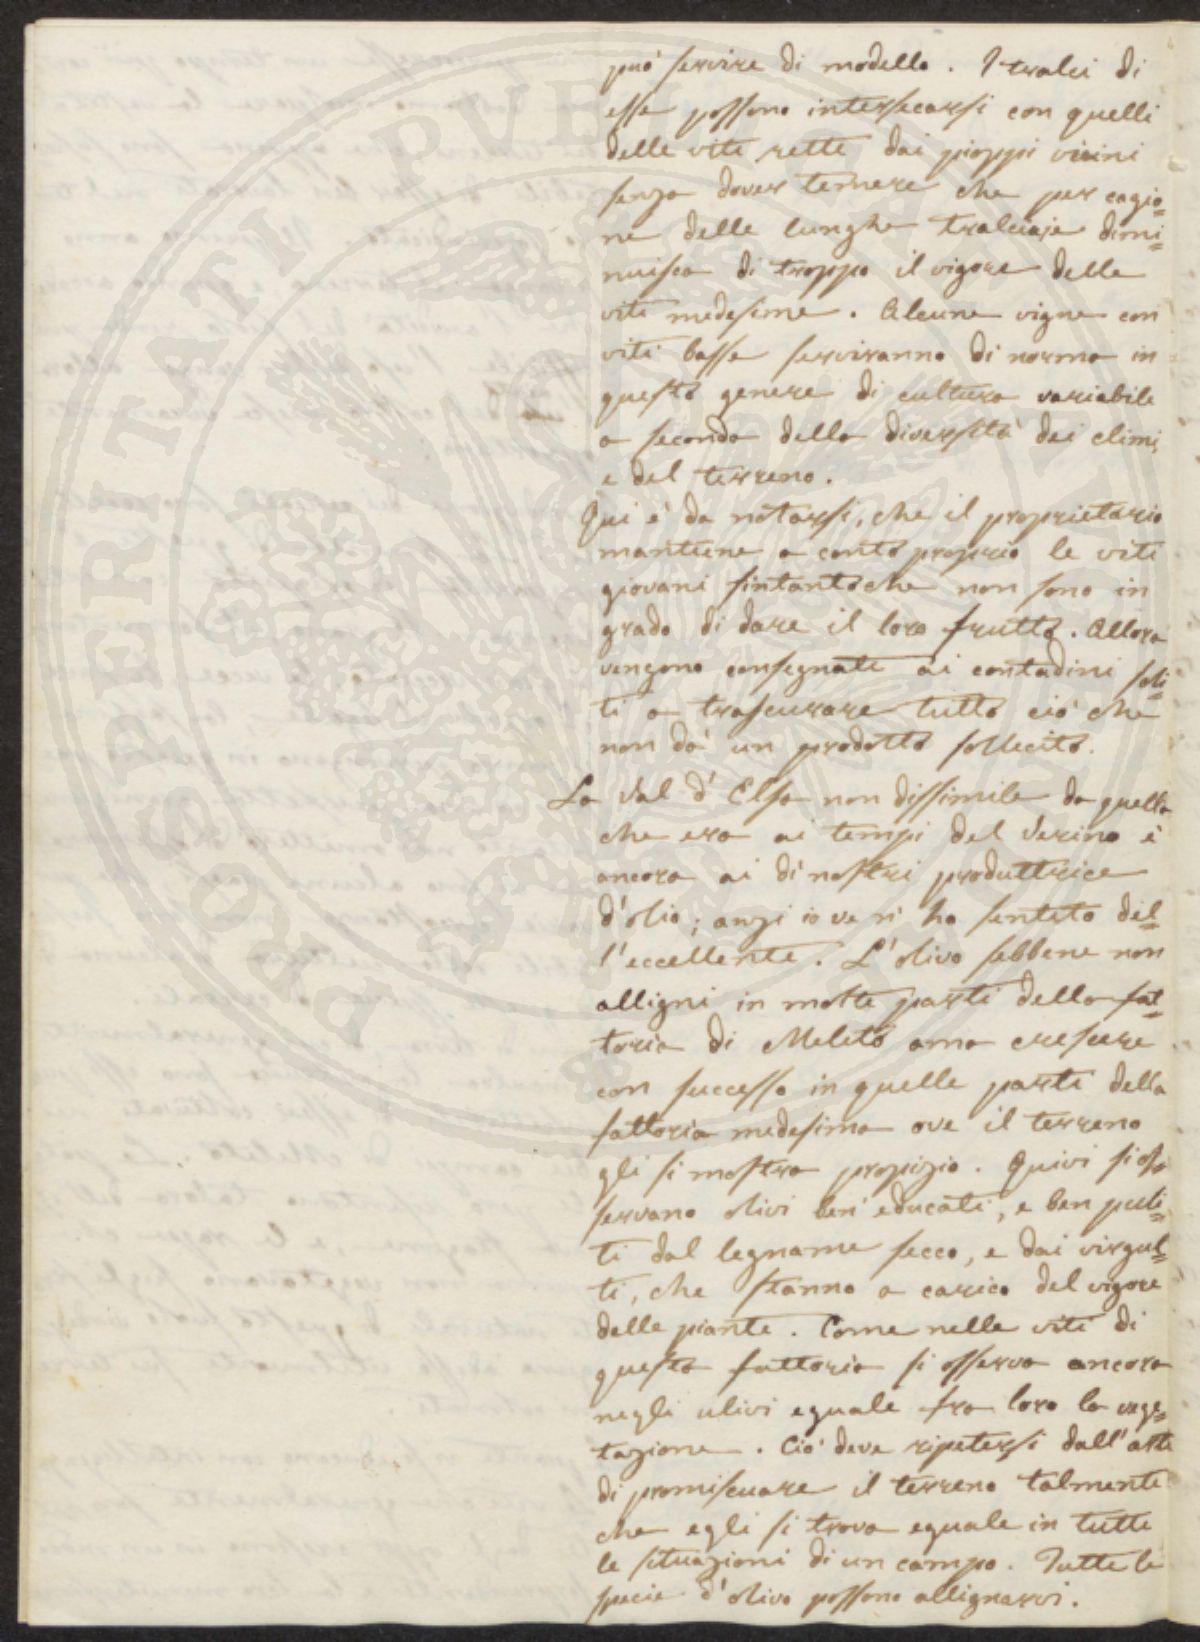 può servire di modello. I tralci di
esse possono intersecarsi con quelli
delle viti rette dai pioppi vicini
senza dover temere che per cagio=
ne delle lunghe tralciaje dimi=
nuisca di troppo il vigore delle
viti medesime. Alcune vigne con
viti basse serviranno di norma in
questo genere di cultura variabile
a seconda della diversità dei climi,
e del terreno.
Qui è da notarsi, che il proprietario
mantiene a conto proprio le viti
giovani sintantoche non sono in
grado di dare il loro frutto. Allora
vengono consegnate ai contadini soli=
ti a trascurare tutto ciò che
non dà un prodotto sollecito.
La Val d'Elsa non dissimile da quella
che era ai tempi del Verino è
ancora ai dì nostri produttrice
d'olio; anzi io ve n'ho sentito del=
l'eccellente. L'olivo sebbene non
alligni in molte parti della fat=
toria di Meleto ama crescere
con successo in quelle parti della
fattoria medesima ove il terreno
gli si mostra propizio. Quivi si os=
servano olivi ben educati, e ben puli=
ti dal legname secco, e dai virgul=
ti, che stanno a carico del vigore
delle piante. Come nelle viti di
questa fattoria si osserva ancora
negli ulivi eguale fra loro la vege=
tazione. Ciò deve ripetersi dall'arte
di promiscuare il terreno talmente
che egli si trova eguale in tutte
le situazioni di un campo. Tutte le
specie d'olivo possono allignarvi.
PROSPERITATI PVBLICAE